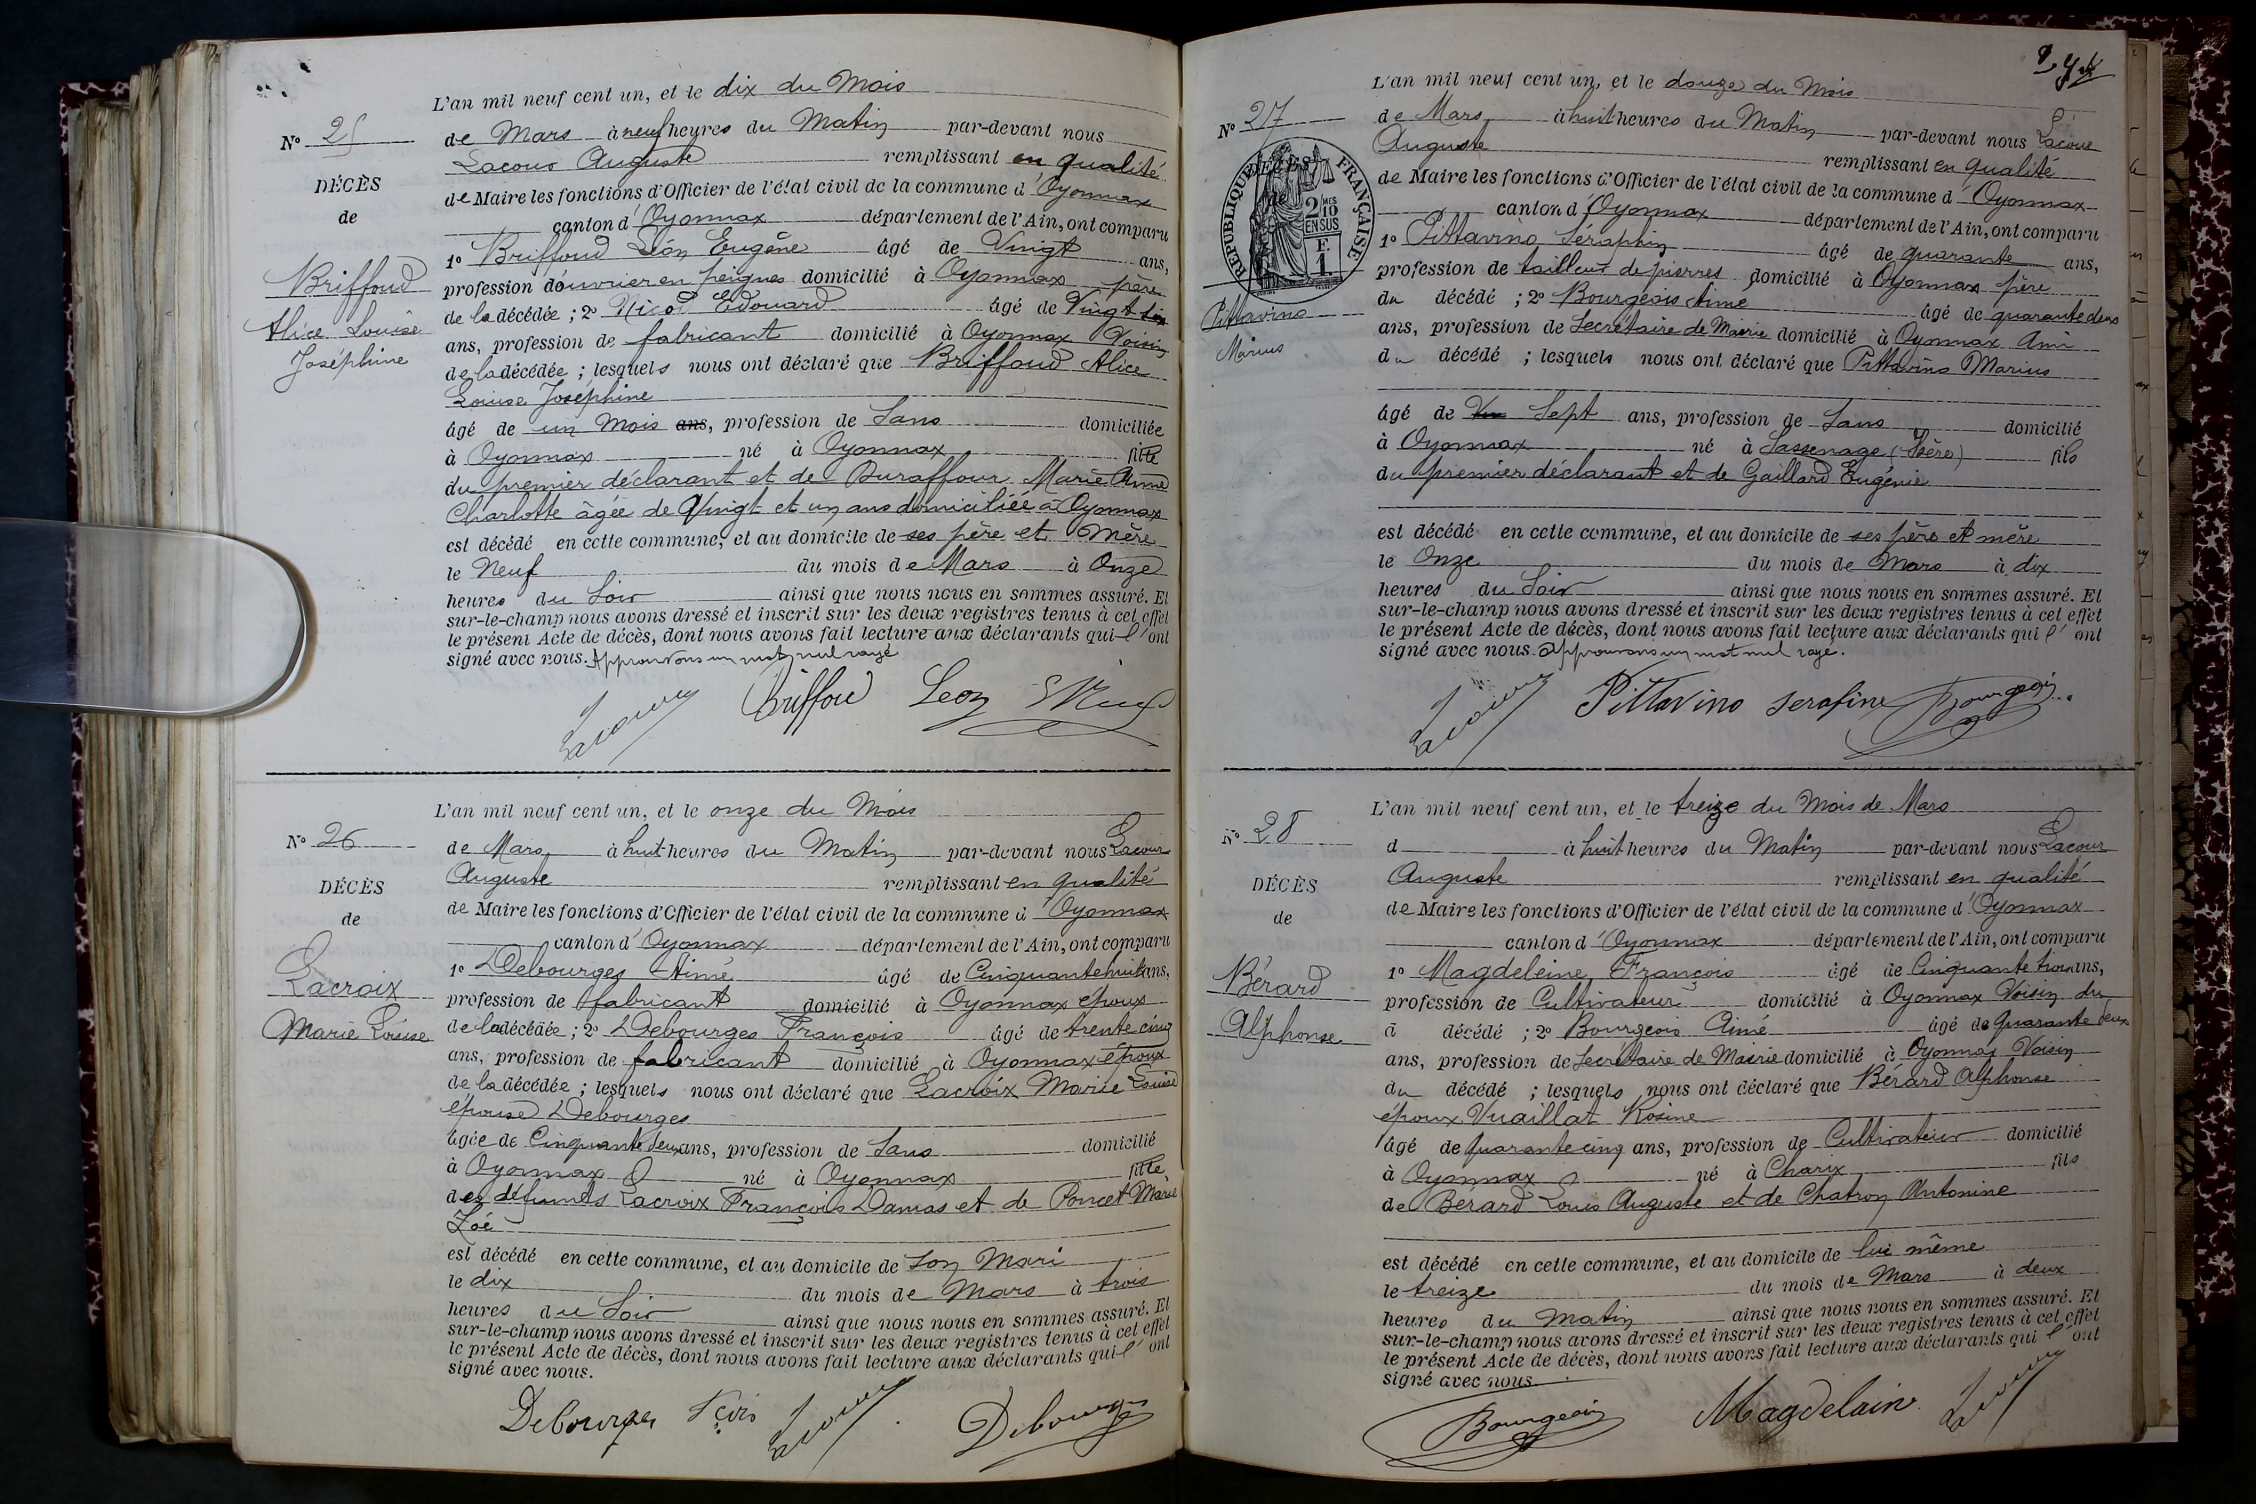 L'an mil neuf cent un, et le dix du Mois
N° 25
de Mars à neuf heures du Matin par-devant nous
Lacour Auguste remplissant en qualité
DÉCÈS
de Maire les fonctions d'Officier de l'état civil de la commune d'Oyonnax
de
canton d'Oyonnax département de l'Ain, ont comparu
1° Briffoud Léon Eugène âgé de Vingt ans,
Briffoud
profession d'ouvrier en peignes domicilié à Oyonnax père
de la décédée ; 2° Nicod Edouard âgé de Vingt
Alice Louise
ans, profession de fabricant domicilié à Oyonnax Voisin
Joséphine
de la décédée ; lesquels nous ont déclaré que Briffoud Alice
Louise Joséphine
âgé de un Mois ans, profession de Sans domiciliée
à Oyonnax né à Oyonnax fille
du premier déclarant et de Duraffour Marie Anne
Charlotte âgée de Vingt et un ans domiciliée à Oyonnax
est décédé en cette commune, et au domicile de ses père et Mère
le Neuf du mois de Mars à Onze
heures du Soir ainsi que nous nous en sommes assuré. Et
sur-le-champ nous avons dressé et inscrit sur les deux registres tenus à cet effet
le présent Acte de décès, dont nous avons fait lecture aux déclarants qui l'ont
signé avec nous. Approuvons un mot nul rayé
Lacour Briffou Leon
L'an mil neuf cent un, et le onze du Mois
N° 26
de Mars à huit heures du Matin par-devant nous Lacour
Auguste remplissant en qualité
DÉCÈS
de Maire les fonctions d'Officier de l'état civil de la commune d'Oyonnax
de
canton d'Oyonnax département de l'Ain, ont comparu
1° Debourges Aimé âgé de Cinquante huit ans,
Lacroix
profession de fabricant domicilié à Oyonnax époux
Marie Louise
de la décédée ; 2° Debourges François âgé de trente cinq
ans, profession de fabricant domicilié à Oyonnax époux
de la décédée ; lesquels nous ont déclaré que Lacroix Marie Louise
épouse Debourges
âgée de Cinquante deux ans, profession de Sans domicilié
à Oyonnax né à Oyonnax fille
des défunts Lacroix François Damas et de Poncet Marie
Zoé
est décédé en cette commune, et au domicile de Son Mari
le dix du mois de Mars à trois
heures du Soir ainsi que nous nous en sommes assuré. Et
sur-le-champ nous avons dressé et inscrit sur les deux registres tenus à cet effet
le présent Acte de décès, dont nous avons fait lecture aux déclarants qui l'ont
signé avec nous.
Debourges Fçois Lacour Debourges
L'an mil neuf cent un, et le douze du Mois
N° 27
de Mars à huit heures du Matin par-devant nous Lacour
Auguste remplissant en qualité
RÉPUBLIQUE FRANÇAISE
DÉCÈS
2 MES
10
EN SUS
F.
1.
de Maire les fonctions d'Officier de l'état civil de la commune d'Oyonnax
canton d'Oyonnax département de l'Ain, ont comparu
1° Pittavino Séraphin âgé de quarante ans,
profession de tailleur de pierres domicilié à Oyonnax père
du décédé ; 2° Bourgeois Aimé âgé de quarante deux
Pittavino
ans, profession de Secrétaire de Mairie domicilié à Oyonnax Ami
Marius
du décédé ; lesquels nous ont déclaré que Pittavino Marius
âgé de Sept ans, profession de Sans domicilié
à Oyonnax né à Sassenage (Isère) fils
du premier déclarant et de Gaillard Eugénie
est décédé en cette commune, et au domicile de ses père et mère
le Onze du mois de Mars à dix
heures du Soir ainsi que nous nous en sommes assuré. Et
sur-le-champ nous avons dressé et inscrit sur les deux registres tenus à cet effet
le présent Acte de décès, dont nous avons fait lecture aux déclarants qui l'ont
signé avec nous. Approuvons un mot nul rayé.
Lacour Pittavino Serafine Bourgeois
L'an mil neuf cent un, et le treize du Mois de Mars
N° 28
d à huit heures du Matin par-devant nous Lacour
Auguste remplissant en qualité
DÉCÈS
de Maire les fonctions d'Officier de l'état civil de la commune d'Oyonnax
de
canton d'Oyonnax département de l'Ain, ont comparu
1° Magdeleine François âgé de Cinquante trois ans,
Bérard
profession de Cultivateur domicilié à Oyonnax Voisin du
d décédé ; 2° Bourgeois Aimé âgé de Quarante deux
Alphonse
ans, profession de Secrétaire de Mairie domicilié à Oyonnax Voisin
du décédé ; lesquels nous ont déclaré que Bérard Alphonse
époux Vuaillat Rosine
âgé de quarante cinq ans, profession de Cultivateur domicilié
à Oyonnax né à Charix fils
de Bérard Louis Auguste et de Chatron Antonine
est décédé en cette commune, et au domicile de lui même
le treize du mois de Mars à deux
heures du Matin ainsi que nous nous en sommes assuré. Et
sur-le-champ nous avons dressé et inscrit sur les deux registres tenus à cet effet
le présent Acte de décès, dont nous avons fait lecture aux déclarants qui l'ont
signé avec nous.
Bourgeois Magdelain Lacour